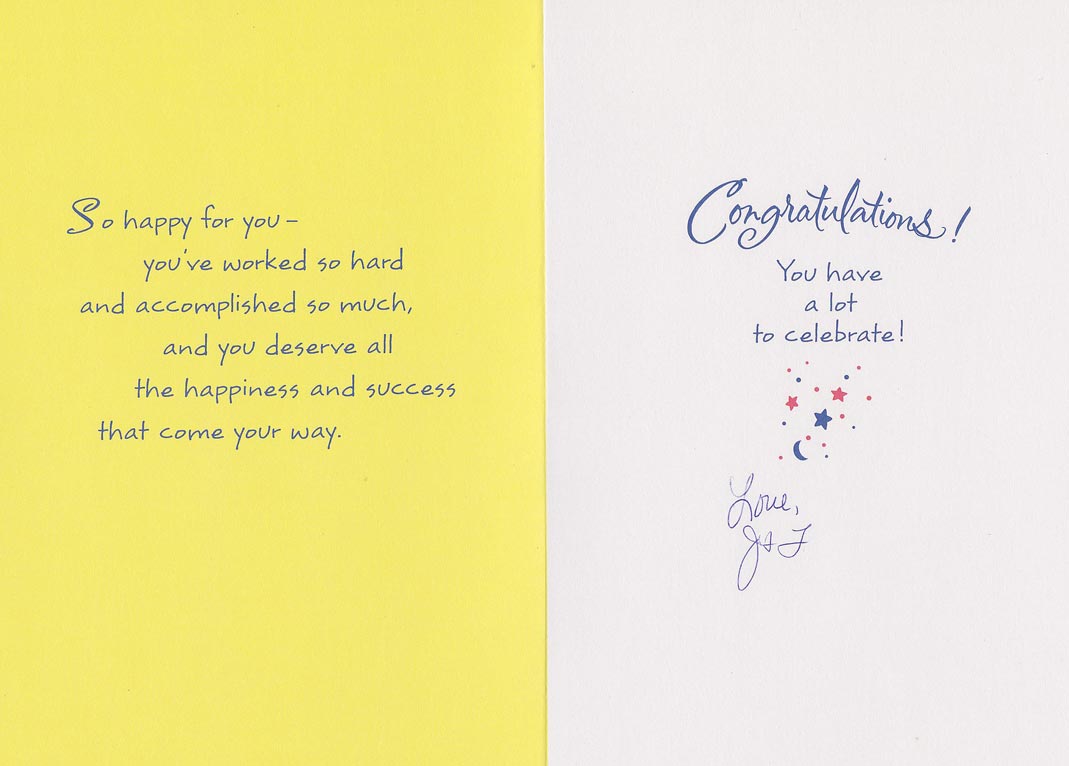 So happy for you –
you've worked so hard
and accomplished so much,
and you deserve all
the happiness and success
that come your way.
Congratulations!
You have
a lot
to celebrate!
Love,